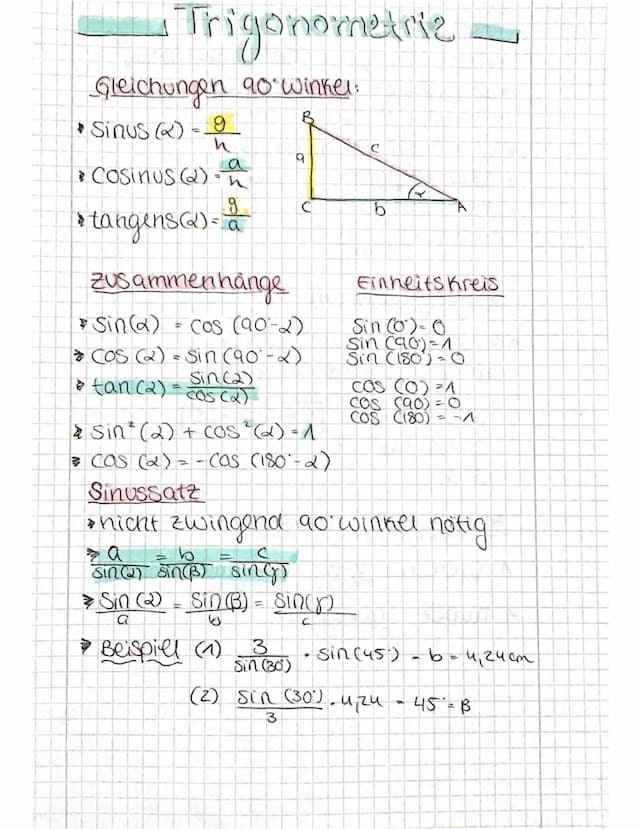 Trigonometrie
Gleichungen 90° Winkel:
sinus(α) = g/h
cosinus(α) = a/h
tangens(α) = g/a
B
a
c
C
b
α
A
Zusammenhänge
sin(α) = cos (90°-α)
cos (α) = sin (90°-α)
tan (α) = sin(α)/cos(α)
sin²(α) + cos²(α) = 1
cos (α) = -cos (180°-α)
Einheitskreis
sin (0°) = 0
sin (90°) = 1
sin (180°) = 0
cos (0) = 1
cos (90) = 0
cos (180) = -1
Sinussatz
nicht zwingend 90° Winkel nötig
a/sin(α) = b/sin(β) = c/sin(γ)
sin(α)/a = sin(β)/b = sin(γ)/c
Beispiel (1) 3/sin(30°) · sin(45°) = b = 4,24cm
(2) sin(30°)/3 · 4,24 = 45° = β